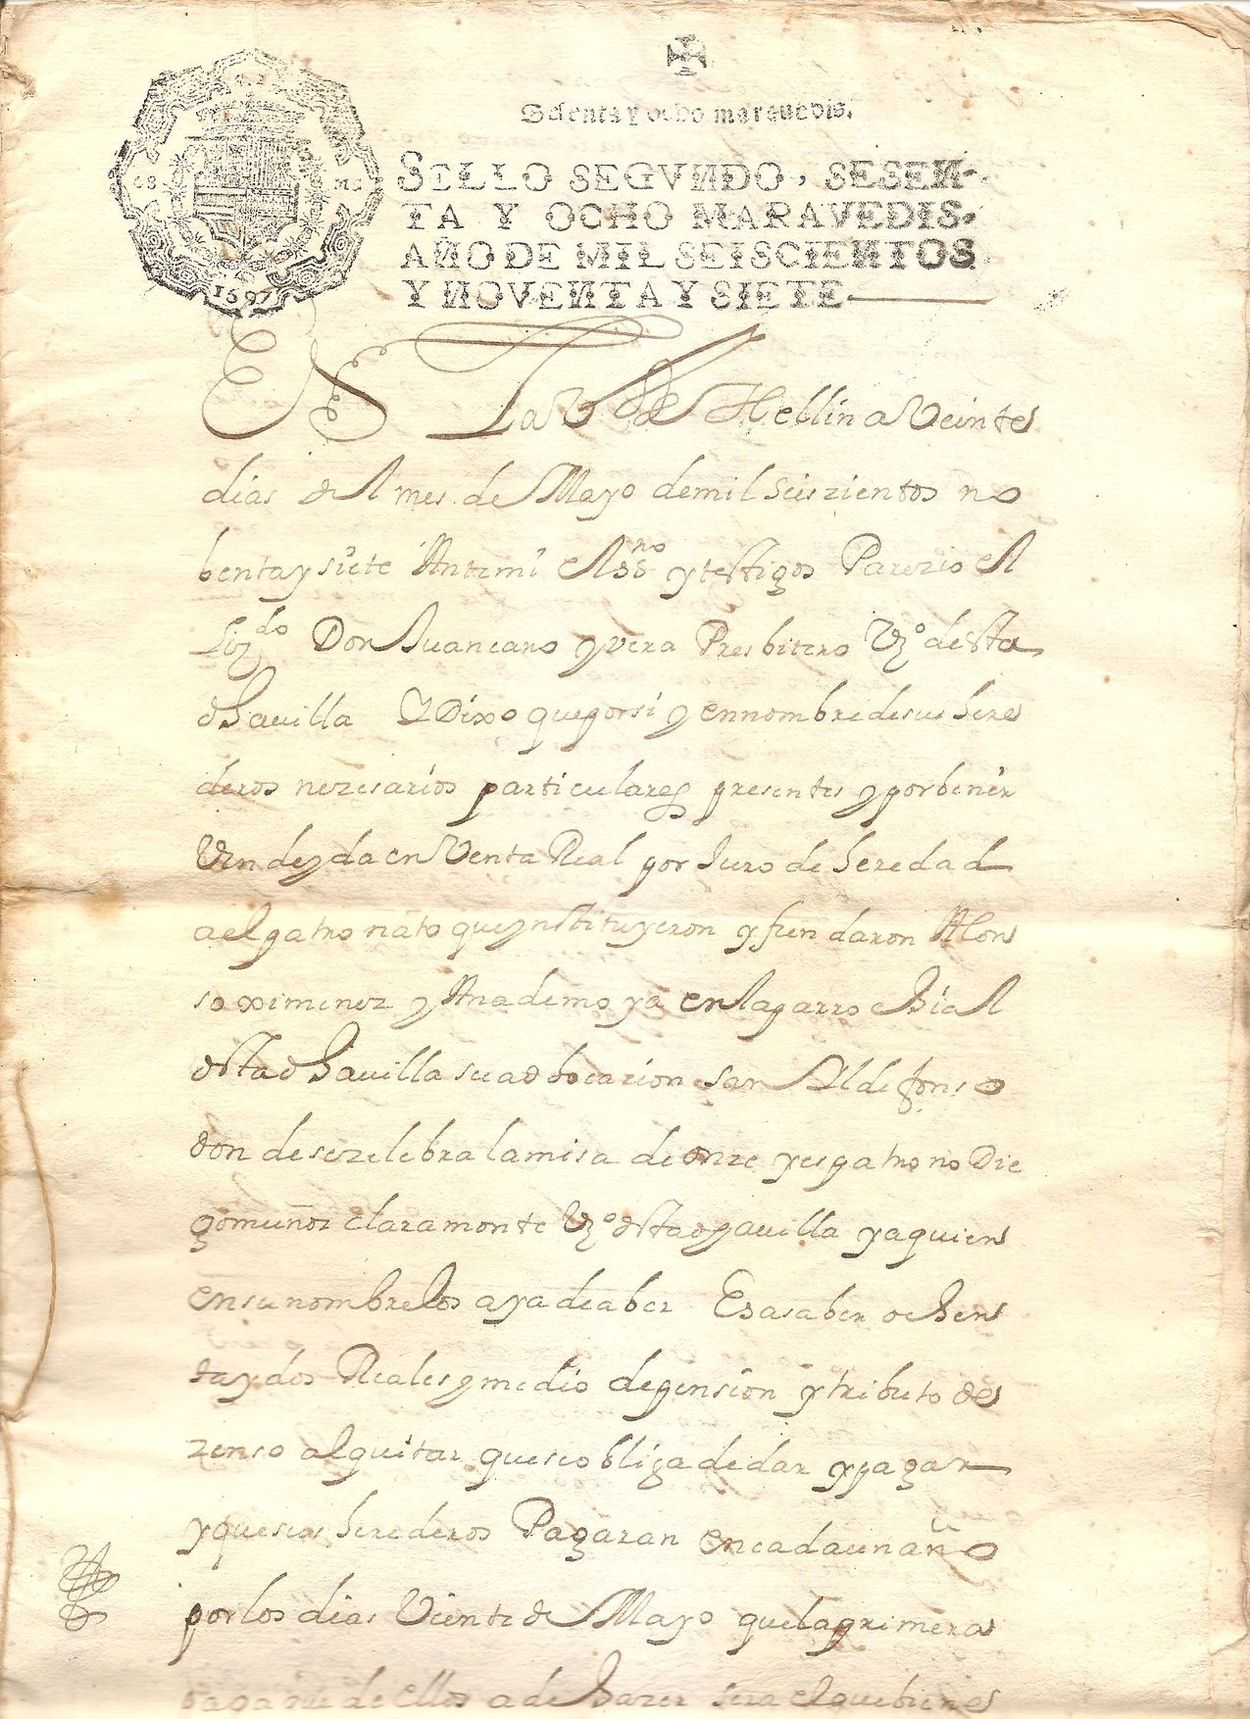 Sesenta y ocho maravedis.
SELLO SEGVNDO, SESEN-
TA Y OCHO MARAVEDIS,
AÑO DE MIL SEISCIENTOS
Y NOVENTA Y SIETE
1697
EN La Vª de Hellin a Veinte
dias del mes de Mayo de mil seiszientos no
benta y siete Ante mi el ssno y testigos Parezio el
Lizdo Don Juan cano y vera Presbitero Vzº desta
dha villa Y Dixo que por si y en nombre de sus here
deros nezesarios particulares presentes y por benir
Vende y da en Venta Real por Juro de heredad
a el patronato que ynstituyeron y fundaron Alon
so ximenez y Ana de moya en la parrochial
desta dha villa su adbocazion san Ildefonso
donde se zelebra la misa de onze y es patrono Die
go muñoz claramonte Vzº desta dha villa y a quien
en su nombre los aya de aber Es a saber ochen
ta y dos Reales y medio de pension y tributo de
zenso al quitar que se obliga de dar y pagar
y que sus herederos Pagaran en cada un año
por los dias Viente de Mayo que la primera
paga que de ellos a de hazer sera el que biene